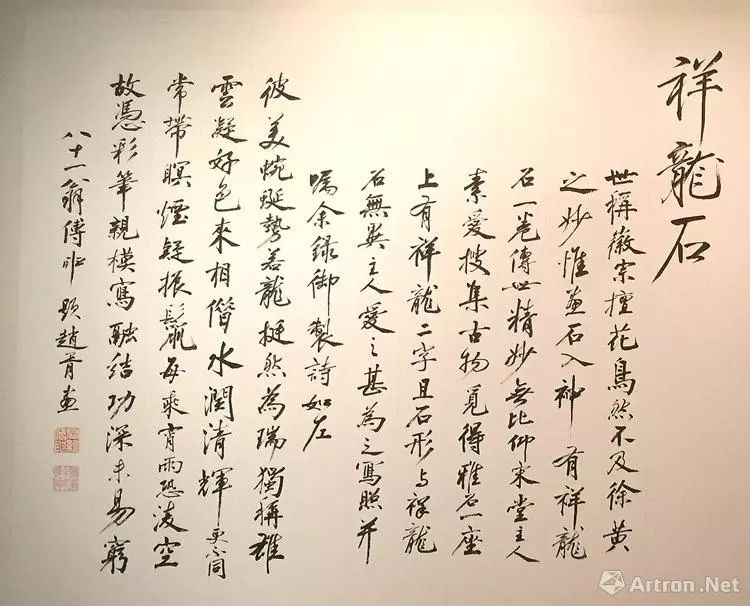 祥龍石
世稱徽宗擅花鳥然不及徐黃
之妙惟畫石入神 有祥龍
石一卷傳世精妙無比仰來堂主人
素愛搜集古物覓得雅石一座
上有祥龍二字且石形与祥龍
石無異主人愛之甚為之寫照并
囑余錄御製詩如左
彼美蜿蜒勢若龍挺然為瑞獨稱雄
雲凝好色來相借水潤清輝更不同
常帶暝煙疑振鬣每乘宵雨恐凌空
故憑彩筆親模寫融結功深未易窮
八十一翁傅申題趙胥畫
Artron.Net